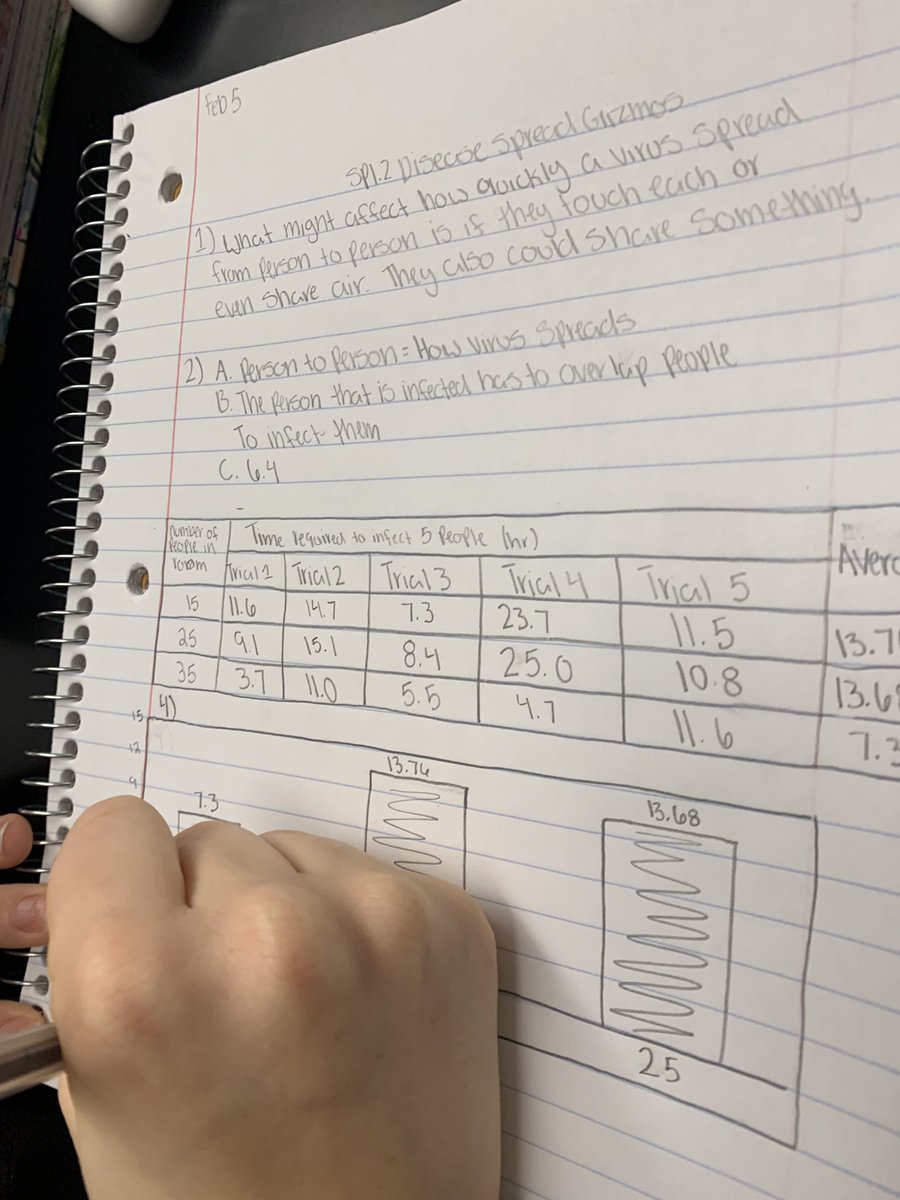 Feb 5
SP1.2 Disease Spread Gizmos
1) What might affect how quickly a virus spread
from person to person is if they touch each or
even share air. They also could share something.
2) A. Person to Person = How virus spreads
B. The person that is infected has to overlap people
To infect them
C. 6.4
number of people in room Time required to infect 5 people (hr)
Trial 1 Trial 2 Trial 3 Trial 4 Trial 5
15 11.6 14.7 7.3 23.7 11.5 13.7
25 9.1 15.1 8.4 25.0 10.8 13.68
35 3.7 11.0 5.5 4.7 11.6 7.3
4)
15
12
9
7.3 13.76 13.68
25